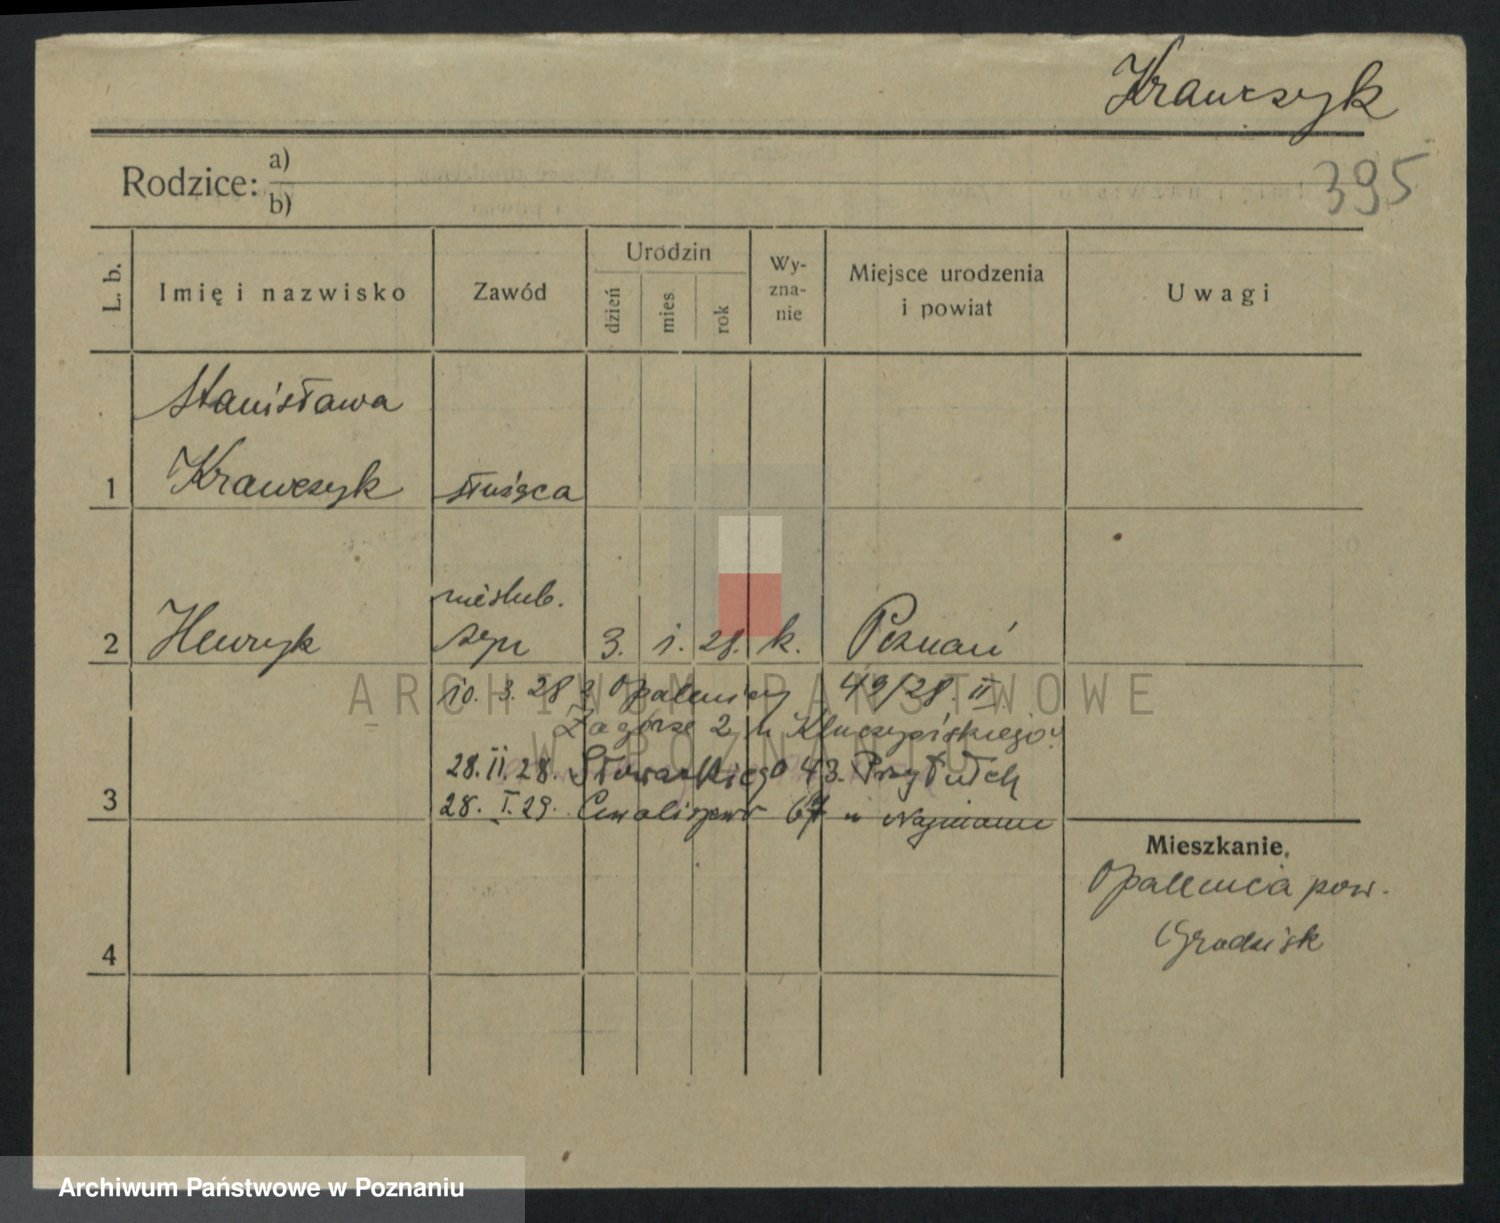 Krawczyk
395
Rodzice: a)
b)
L. b.
Imię i nazwisko
Zawód
Urodzin
dzień
mies.
rok
Wy-
zna-
nie
Miejsce urodzenia
i powiat
Uwagi
Stanisława
1 Krawczyk służąca
nieślub.
2 Henryk syn 3. 1. 28. k. Poznań
10. 3. 28 z Opalenicy 49/28. II.
Zagórze 2 u
28. II. 28. Słowackiego 43. Przytułek
3 28. I. 29. 67 u
Mieszkanie.
Opalenica pow.
Grodzisk
4
ARCHIWUM PAŃSTWOWE
W POZNANIU
Archiwum Państwowe w Poznaniu